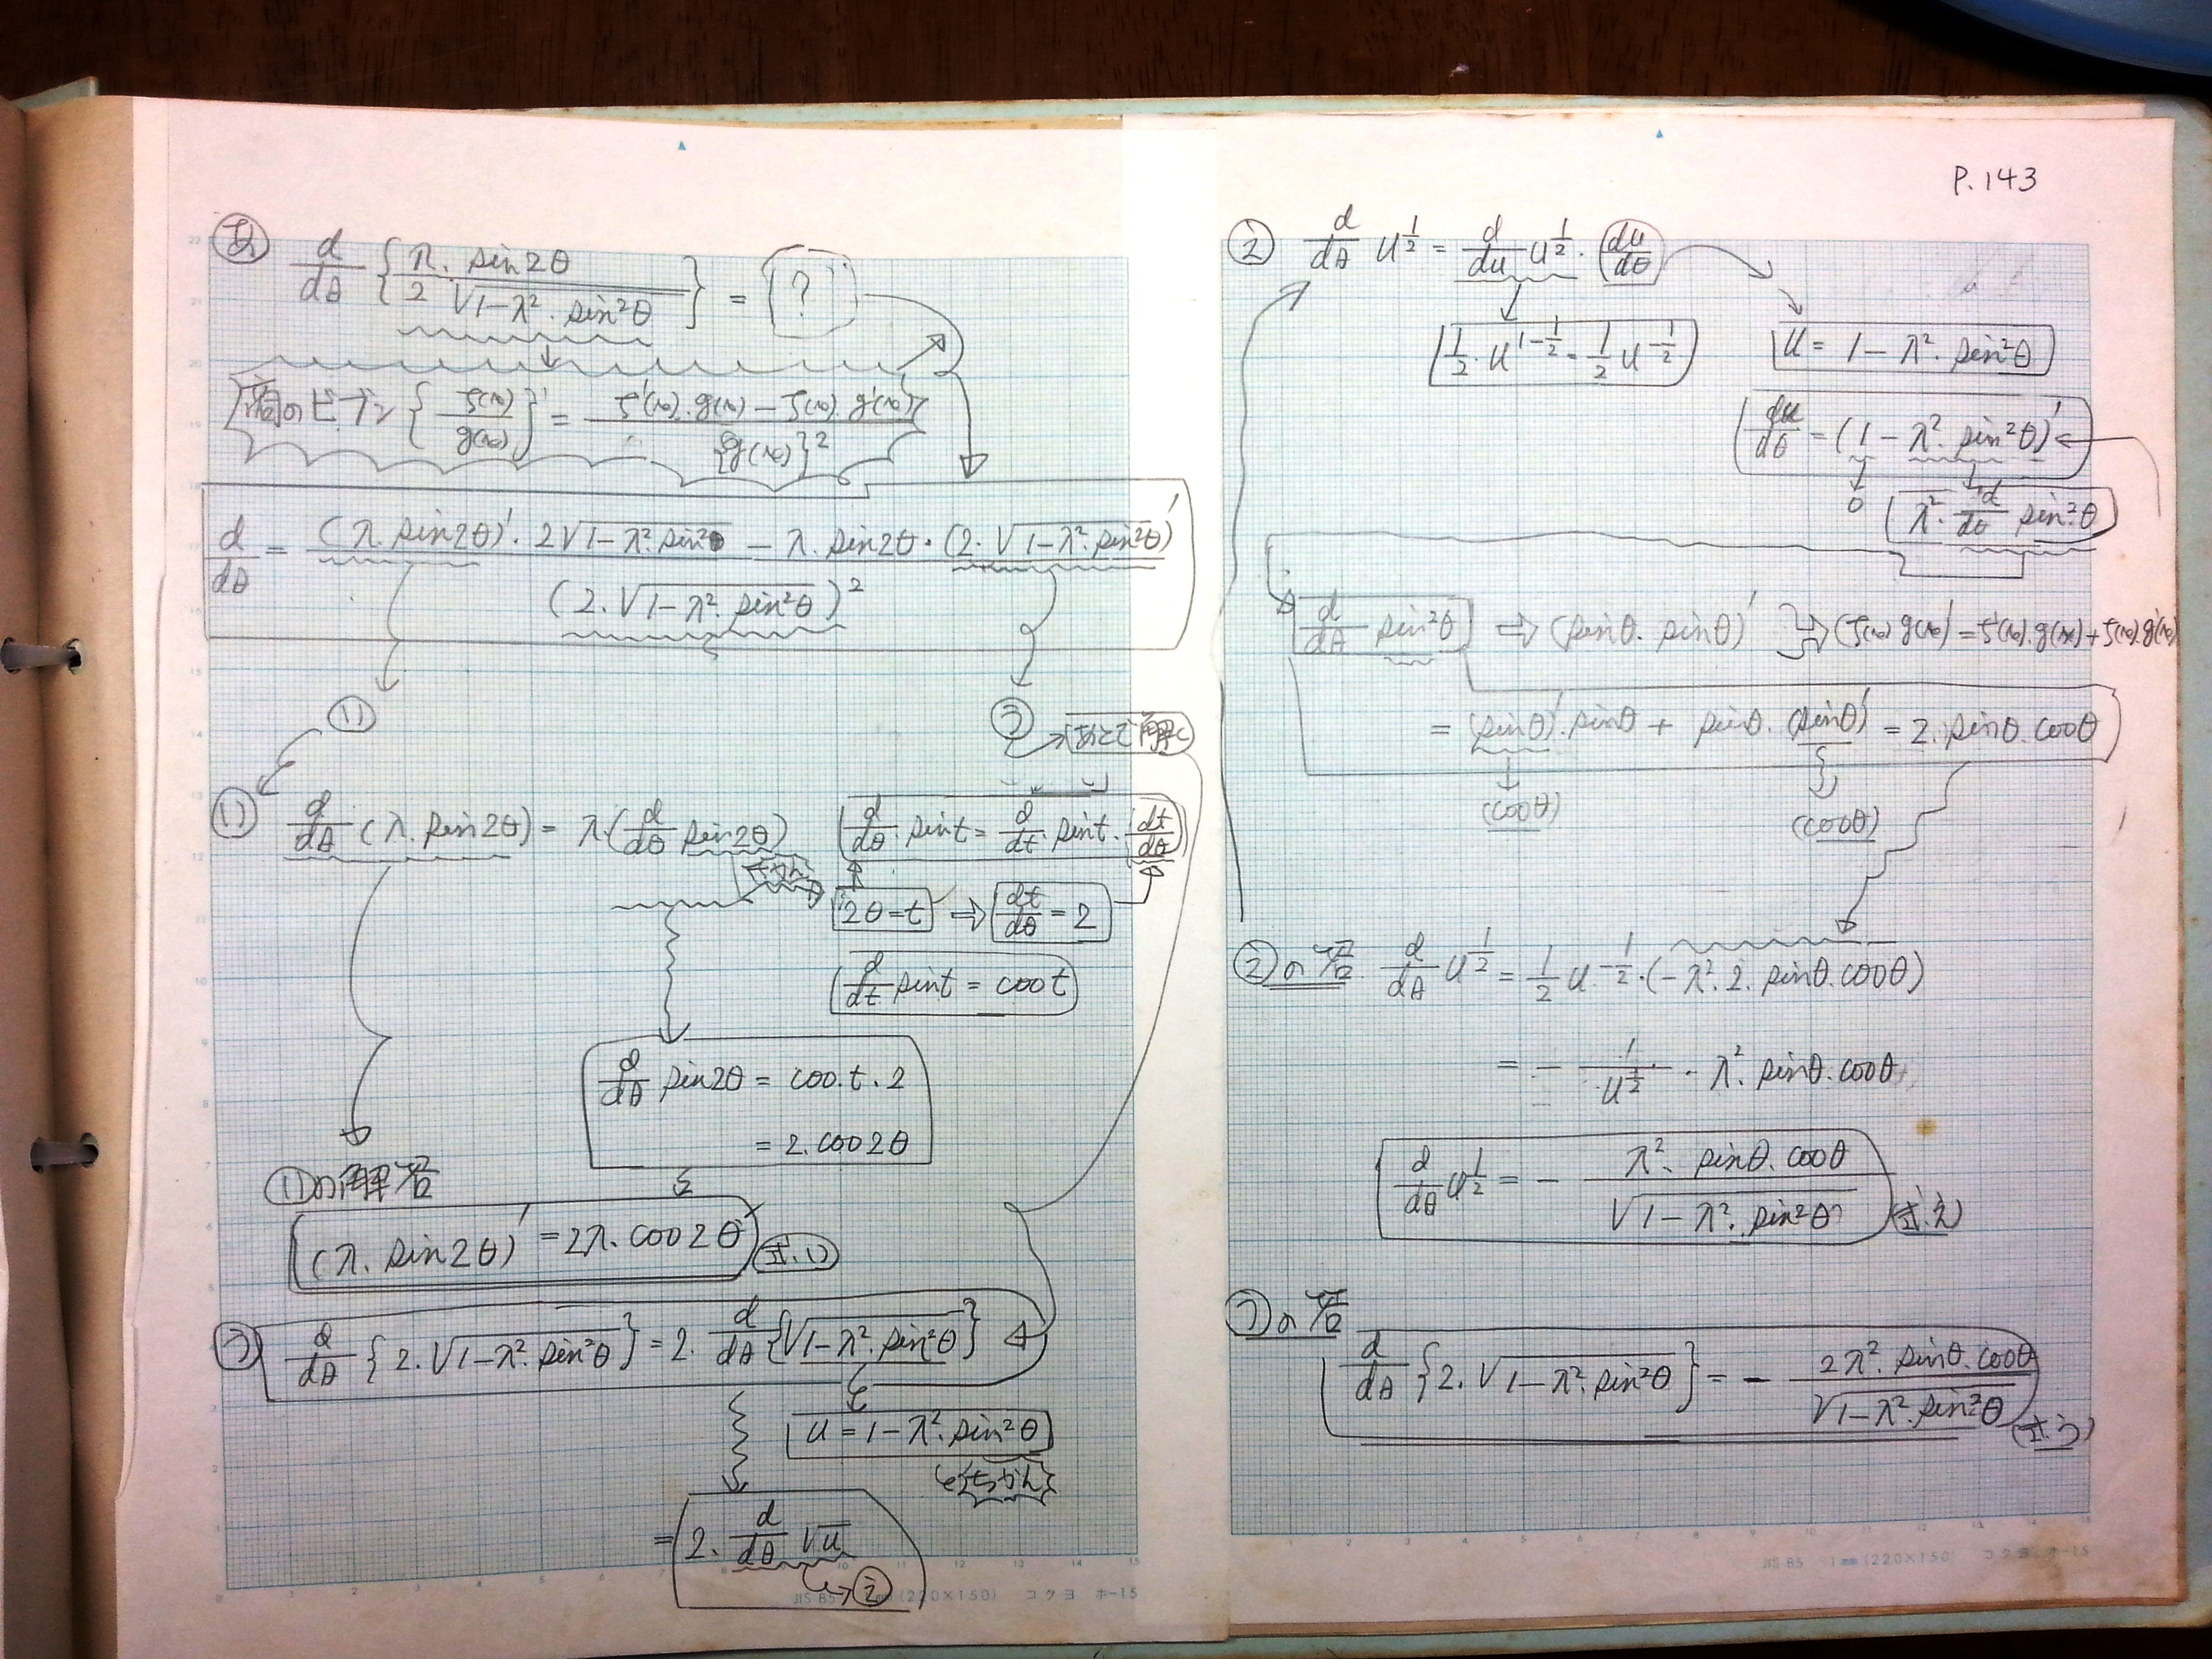 P.143
d/dθ {λ・sin2θ / 2√1-λ²・sin²θ} = ?
商のビブン {f(x)/g(x)}' = f'(x)・g(x) - f(x)・g'(x) / {g(x)}²
d/dθ = (λ・sin2θ)'・2√1-λ²・sin²θ - λ・sin2θ・(2・√1-λ²・sin²θ)' / (2・√1-λ²・sin²θ)²
い う
あとで解く
い d/dθ (λ・sin2θ) = λ・(d/dθ sin2θ)
d/dθ・sint = d/dt・sint・dt/dθ
2θ=t ⇒ dt/dθ = 2
d/dt sint = cost
d/dθ sin2θ = cos・t・2
= 2・cos2θ
いの解答
(λ・sin2θ)' = 2λ・cos2θ 式.い
う d/dθ {2・√1-λ²・sin²θ} = 2・d/dθ {√1-λ²・sin²θ}
u = 1-λ²・sin²θ
とちかん
= 2・d/dθ √u
え
え d/dθ u^1/2 = d/du u^1/2・(du/dθ)
1/2・u^1-1/2 = 1/2 u^-1/2
u = 1-λ²・sin²θ
du/dθ = (1-λ²・sin²θ)'
0
λ²・d/dθ sin²θ
d/dθ sin²θ ⇒ (sinθ・sinθ)' ⇒ (f(x)g(x))' = f'(x)・g(x) + f(x)・g'(x)
= (sinθ)'・sinθ + sinθ・(sinθ)' = 2・sinθ・cosθ
(cosθ) (cosθ)
えの答 d/dθ u^1/2 = 1/2 u^-1/2・(-λ²・2・sinθ・cosθ)
= - 1/u^1/2・λ²・sinθ・cosθ
d/dθ u^1/2 = - λ²・sinθ・cosθ / √1-λ²・sin²θ (式.え)
うの答
d/dθ {2・√1-λ²・sin²θ} = - 2λ²・sinθ・cosθ / √1-λ²・sin²θ (式.う)
JIS B5 1mm (220×150) コクヨ ホ-15
JIS B5 1mm (220×150) コクヨ ホ-15